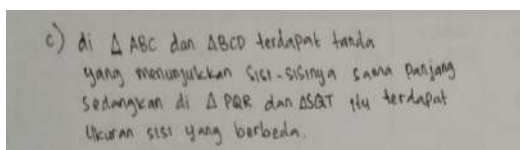 c) di △ ABC dan △BCD terdapat tanda
yang menunjukkan sisi-sisinya sama panjang
sedangkan di △ PQR dan △SQT itu terdapat
ukuran sisi yang berbeda.